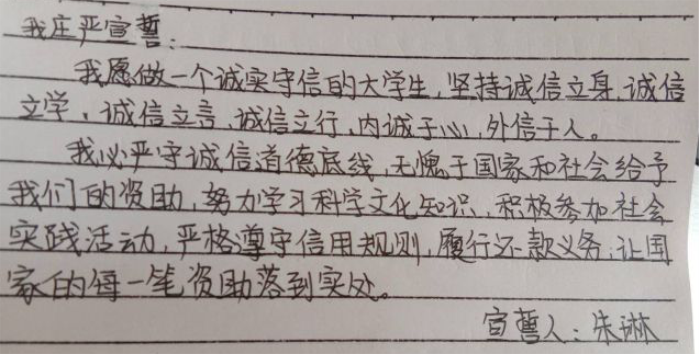 我庄严宣誓：
我愿做一个诚实守信的大学生，坚持诚信立身、诚信
立学、诚信立言、诚信立行，内诚于心，外信于人。
我必严守诚信道德底线，无愧于国家和社会给予
我们的资助，努力学习科学文化知识，积极参加社会
实践活动，严格遵守信用规则，履行还款义务，让国
家的每一笔资助落到实处。
宣誓人：朱琳